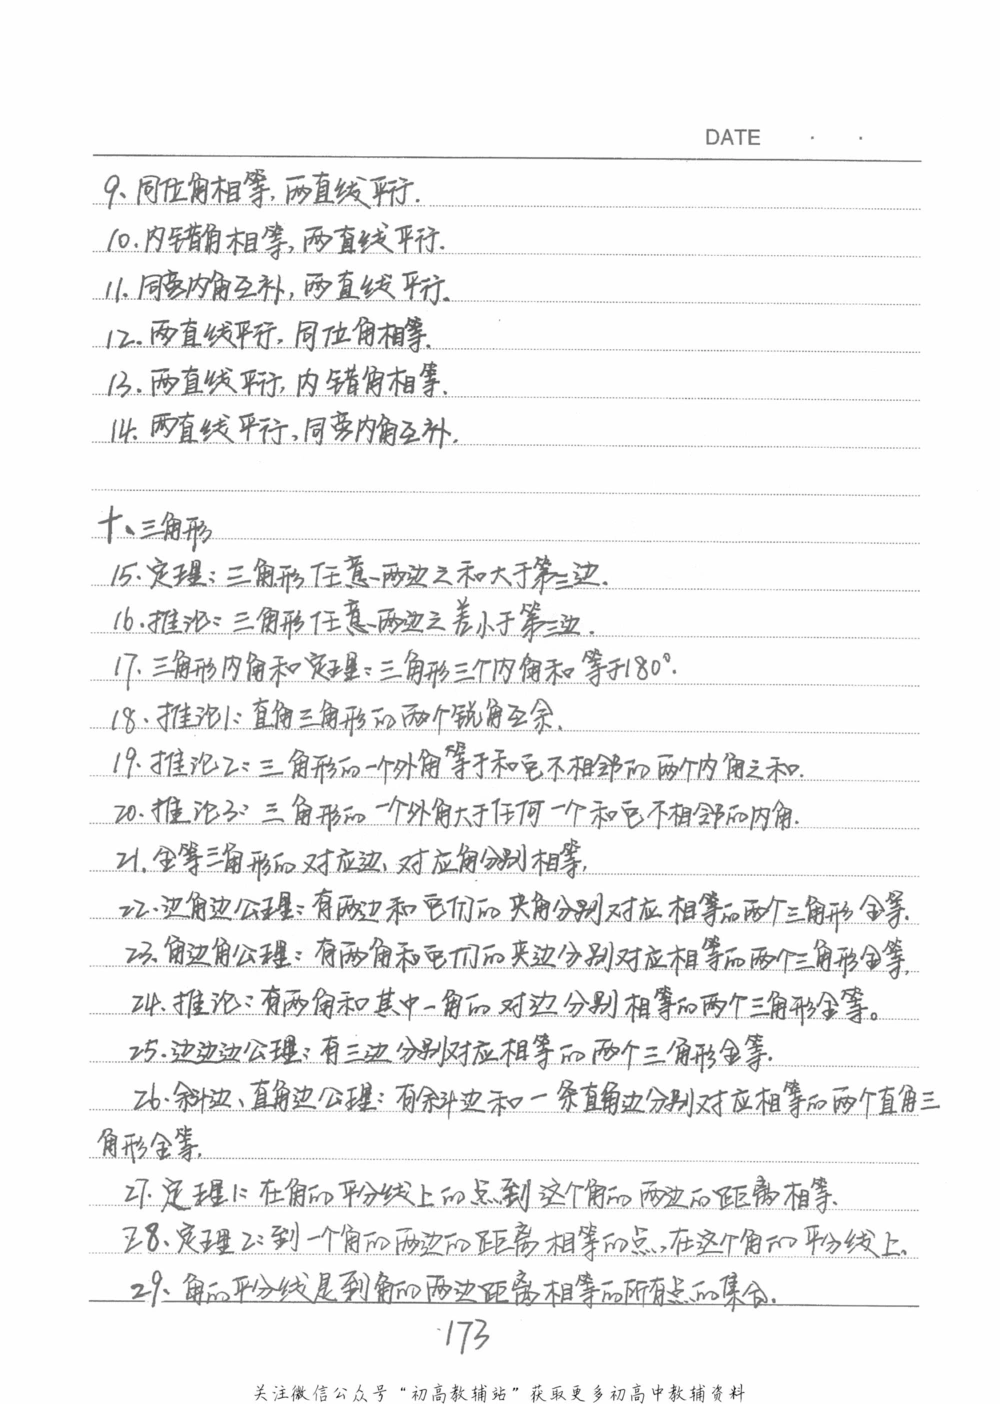 DATE · ·
9、同位角相等,两直线平行.
10.内错角相等,两直线平行.
11.同旁内角互补,两直线平行.
12.两直线平行,同位角相等.
13.两直线平行,内错角相等.
14.两直线平行,同旁内角互补.
十、三角形
15.定理:三角形任意两边之和大于第三边.
16.推论:三角形任意两边之差小于第三边.
17.三角形内角和定理:三角形三个内角和等于180°.
18.推论1:直角三角形的两个锐角互余.
19.推论2:三角形的一个外角等于和它不相邻的两个内角之和.
20.推论3:三角形的一个外角大于任何一个和它不相邻的内角.
21.全等三角形的对应边、对应角分别相等.
22.边角边公理:有两边和它们的夹角分别对应相等的两个三角形全等.
23.角边角公理:有两角和它们的夹边分别对应相等的两个三角形全等.
24.推论:有两角和其中一角的对边分别相等的两个三角形全等。
25.边边边公理:有三边分别对应相等的两个三角形全等.
26.斜边、直角边公理:有斜边和一条直角边分别对应相等的两个直角三
角形全等.
27.定理1:在角的平分线上的点到这个角的两边的距离相等.
28、定理2:到一个角的两边的距离相等的点,在这个角的平分线上.
29、角的平分线是到角的两边距离相等的所有点的集合.
·173
关注微信公众号“初高教辅站”获取更多初高中教辅资料